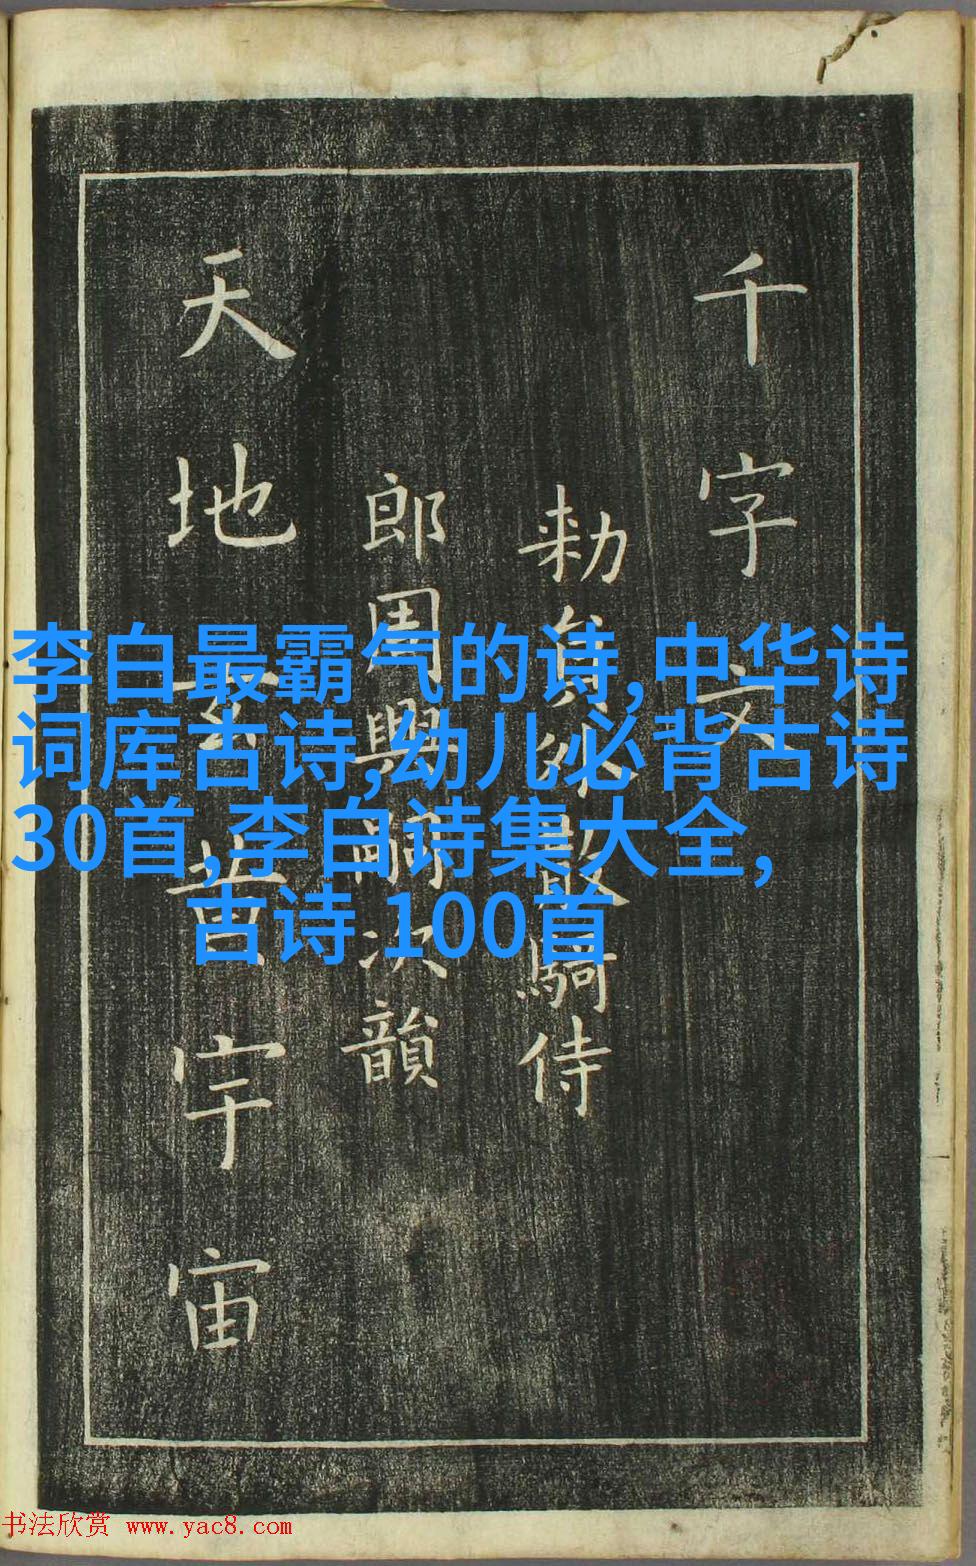 千字文
勅員外散騎侍
郎周興嗣次韻
天地玄黄宇宙
李白最霸气的诗,中华诗
词库古诗,幼儿必背古诗
30首,李白诗集大全,
古诗 100首
书法欣赏 www.yac8.com